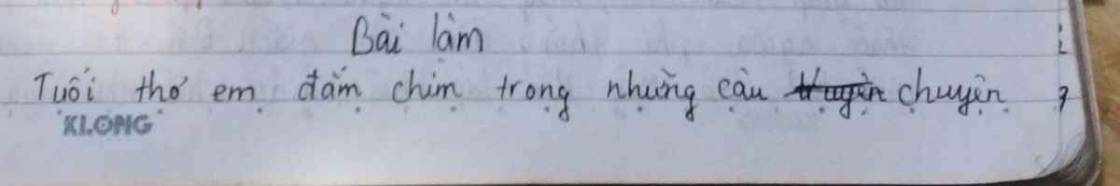 Bài làm
Tuổi thơ em đắm chìm trong những câu truyện chuyện
KLONG